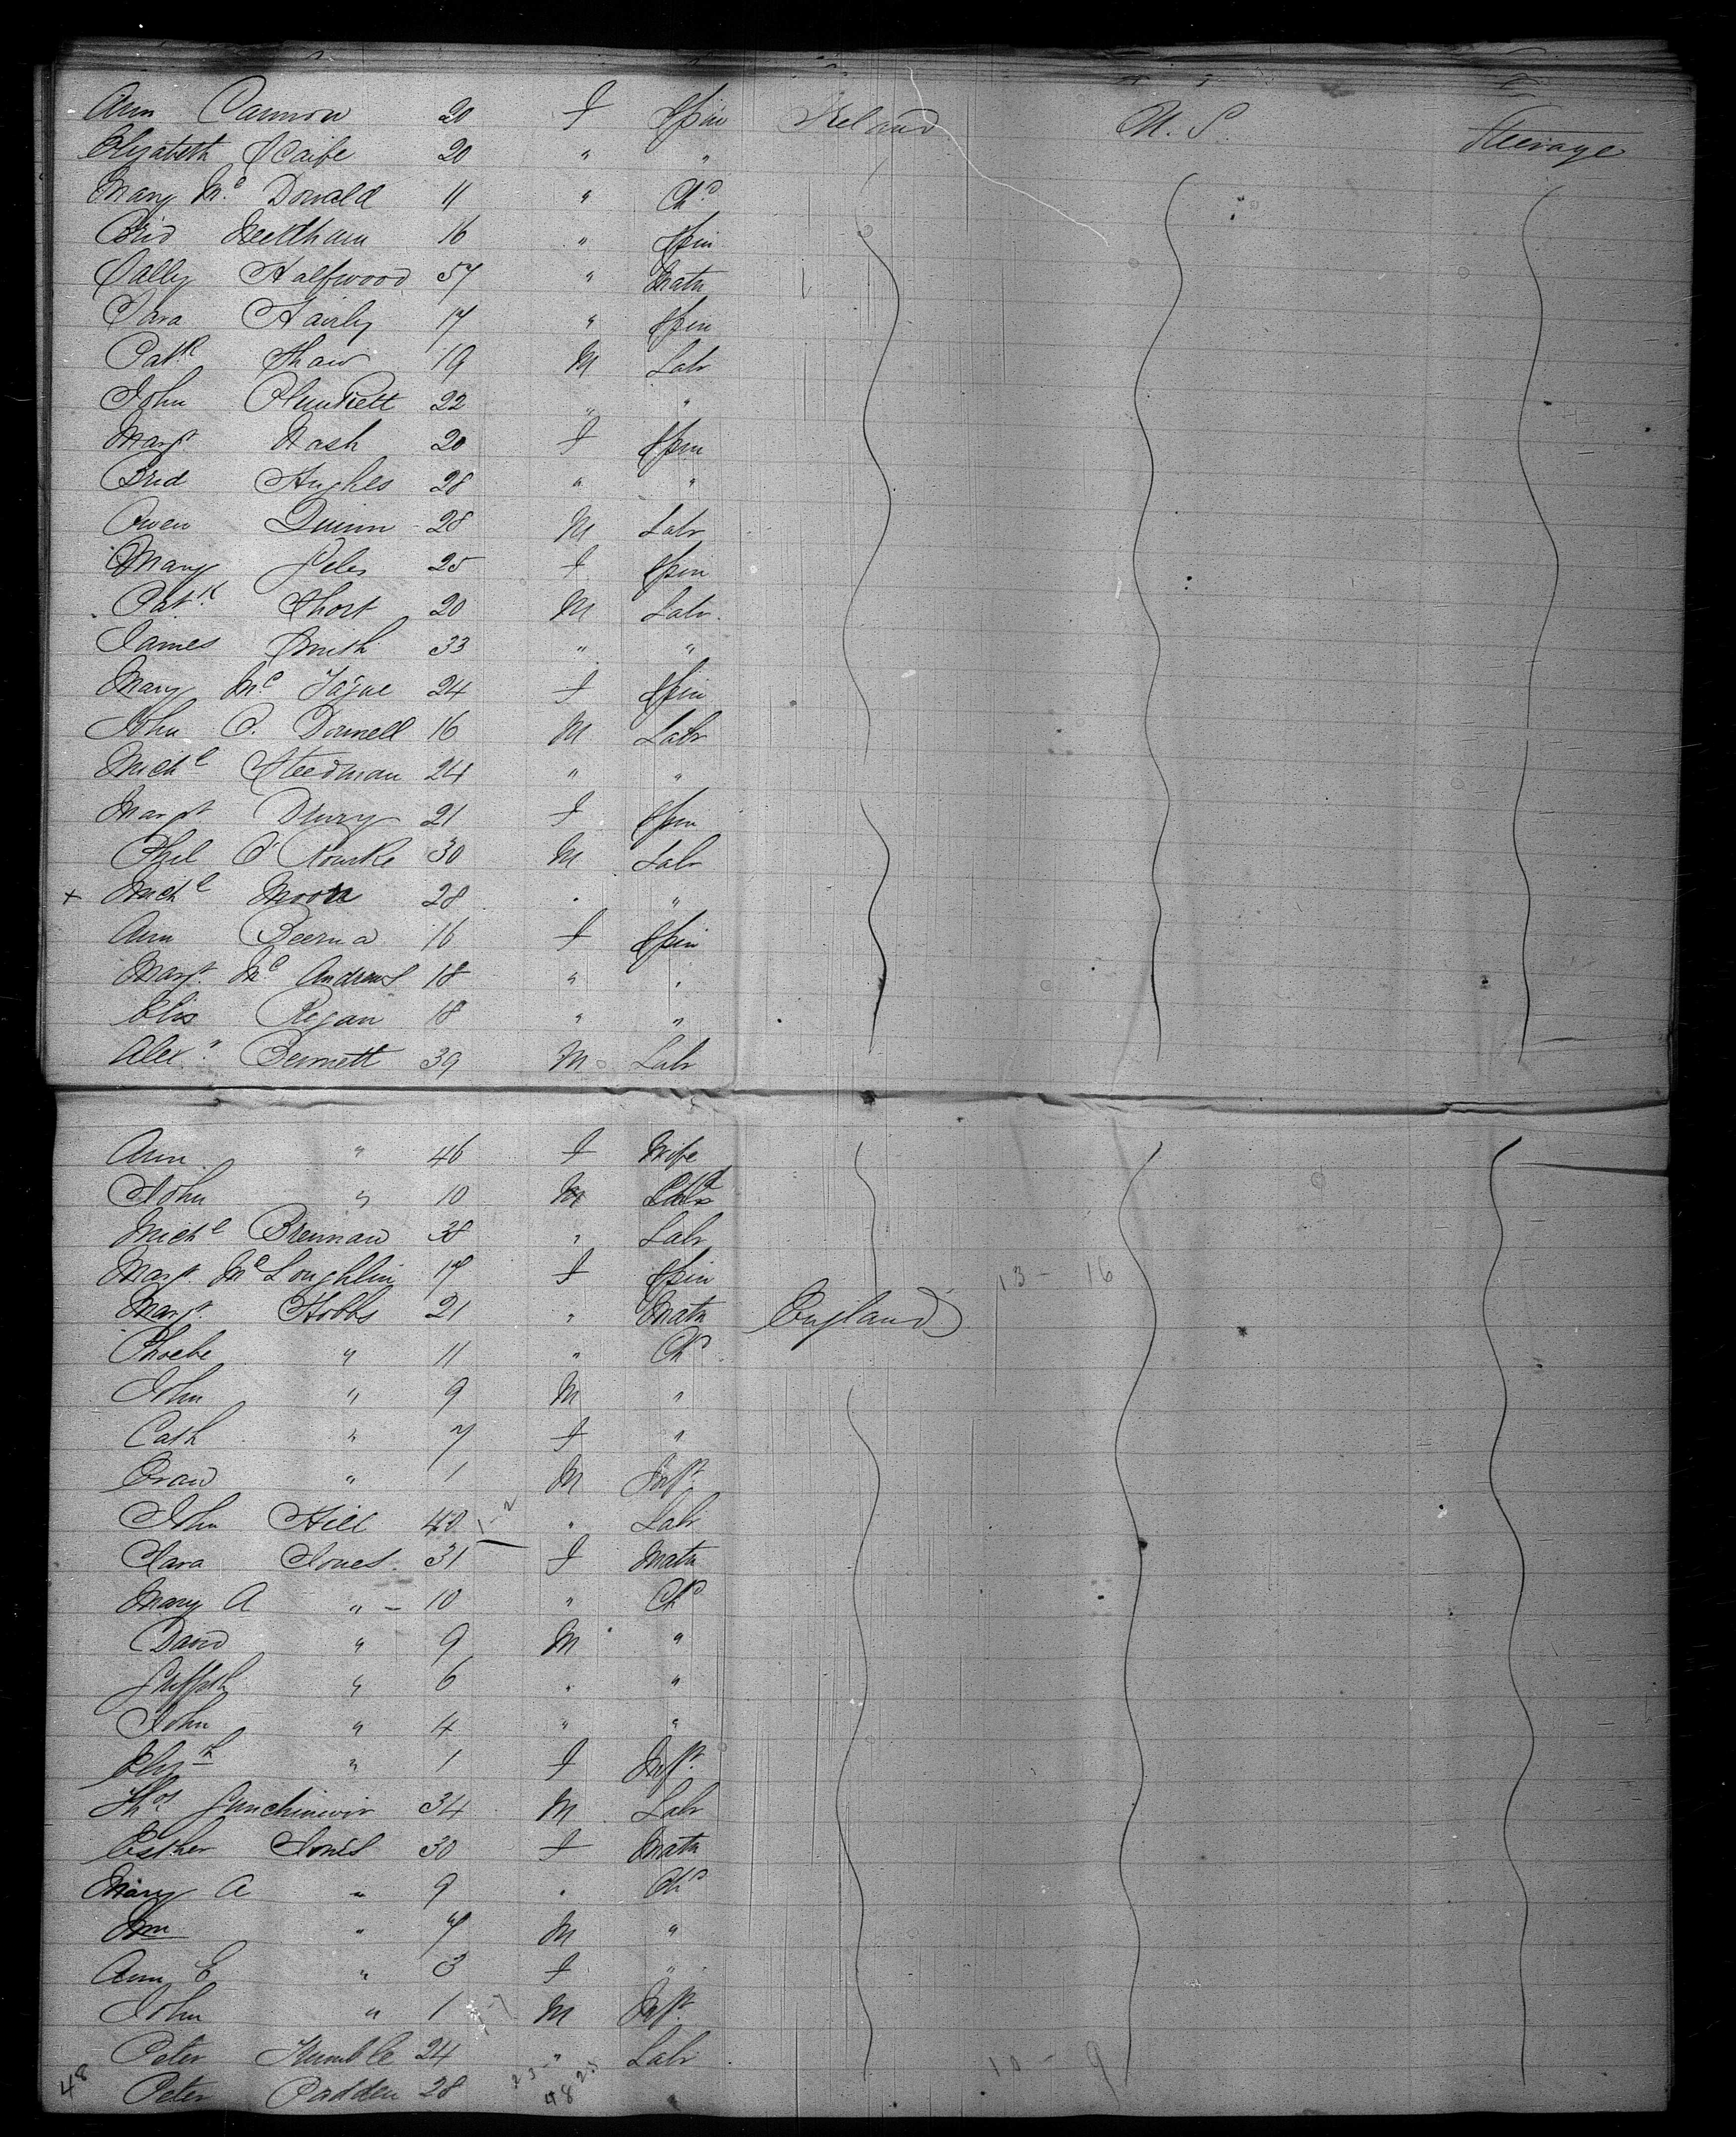 Ann Cannon 20 f Spin Ireland U. S. Steerage
Elizabeth Scaife 20 " "
Mary Mc Donald 11 " Chd
Brid Needham 16 " Spin
Sally Halfwood 57 " Matn
Sara 17 " Spin
Patk Shaw 19 M Labr
John Plunkett 22 " "
Margt Nash 20 f Spin
Brid Hughes 28 " "
Owen Quinn 28 M Labr
Mary Giles 25 f Spin
Patk Short 20 M Labr
James Smith 33 " "
Mary Mc Tague 24 f Spin
John O. Donnell 16 M Labr
Michl Steedman 24 " "
Margt Drury 21 f Spin
Phil O'Rourke 30 M Labr
x Michl Moon 28 " "
Ann 16 f Spin
Margt Mc Andrews 18 " "
Eliz Regan 18 " "
Alexr Bennett 39 M Labr
Ann " 46 f Wife
John " 10 M Chd
Michl Brennan 38 " Labr
Margt Mc Loughlin 17 f Spin 13 - 16
Margt Hobbs 21 " Matn England
Phoebe " 11 " Chd
John " 9 M "
Cath " 7 f "
" 1 M Inft
John Hill 40 " Labr
Sara Jones 31 f Matn
Mary A " 10 " Chd
David " 9 M "
Griffith " 6 " "
John " 4 " "
Elizth " 1 f Inft
Thos 34 M Labr
Esther Jones 30 f Matn
Mary A " 9 " Chd
Wm " 7 M "
Ann E " 3 f "
John " 1 M Inft
Peter Humble 24 " Labr 10 - 9
48 Peter Padden 28 " "
23 25
48